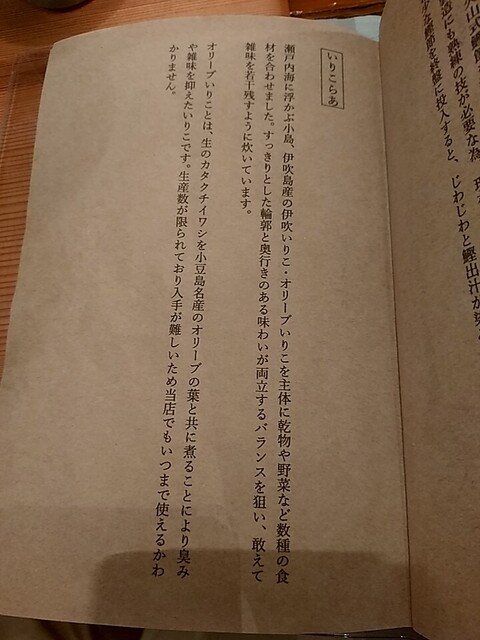 いりこらぁ
瀬戸内海に浮かぶ小島、伊吹島産の伊吹いりこ・オリーブいりこを主体に乾物や野菜など数種の食
材を合わせました。すっきりとした輪郭と奥行きのある味わいが両立するバランスを狙い、敢えて
雑味を若干残すように炊いています。
オリーブいりことは、生のカタクチイワシを小豆島名産のオリーブの葉と共に煮ることにより臭み
や雑味を抑えたいりこです。生産数が限られており入手が難しいため当店でもいつまで使えるかわ
かりません。